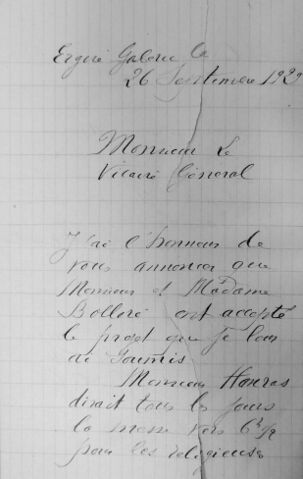 Ergué Gabéric le
26 Septembre 1929
Monsieur Le
Vicaire Général
J'ai l'honneur de
vous annoncer que
Monsieur et Madame
Bolloré ont accepté
le projet que je leur
ai soumis.
Monsieur
dirait tous les jours
la messe vers 6h½
pour les religieuses